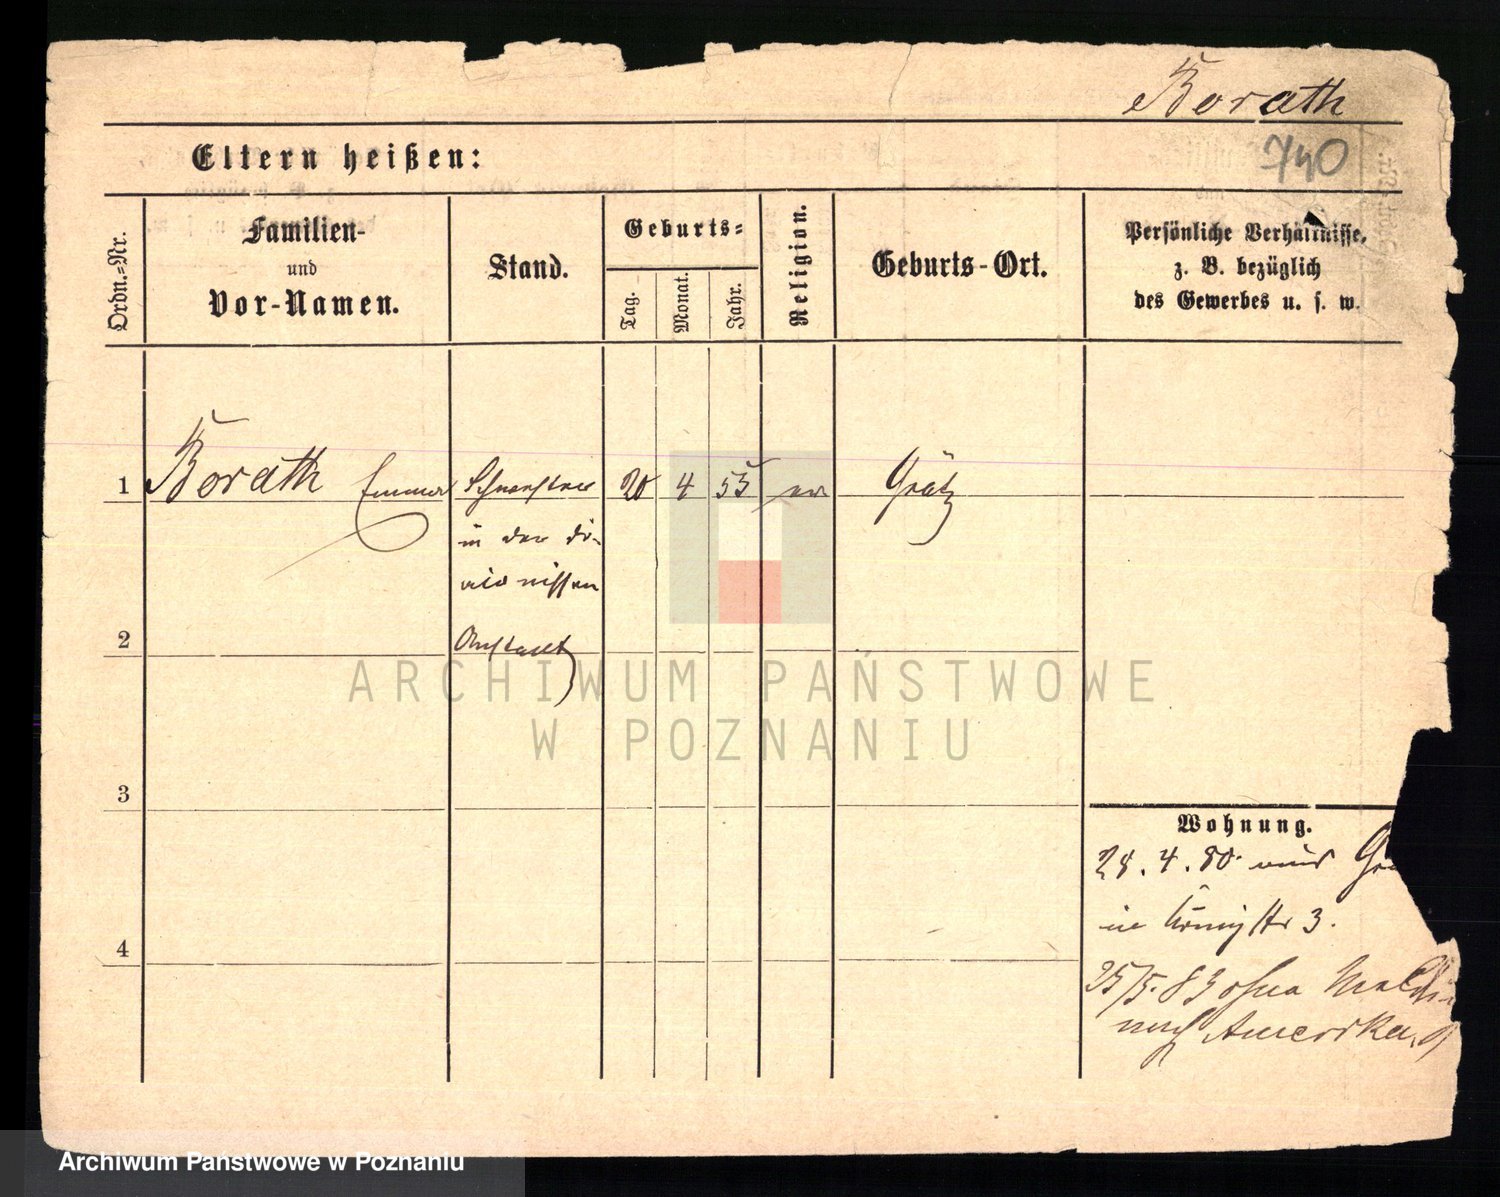 Borath
740
Eltern heißen:
Ordn.=Nr.
Familien-
und
Vor-Namen.
Stand.
Geburts=
Tag.
Monat.
Jahr.
Religion.
Geburts-Ort.
Persönliche Verhältnisse,
z. B. bezüglich
des Gewerbes u. s. w.
1 Borath Emma Schwester 20 4 55 ev Grätz
in der Di-
akonissen
2 Anstalt
3
4
Wohnung.
28.4.80. aus
in Königstr 3.
25/5.83 ohne
nach Amerika
ARCHIWUM PAŃSTWOWE
W POZNANIU
Archiwum Państwowe w Poznaniu